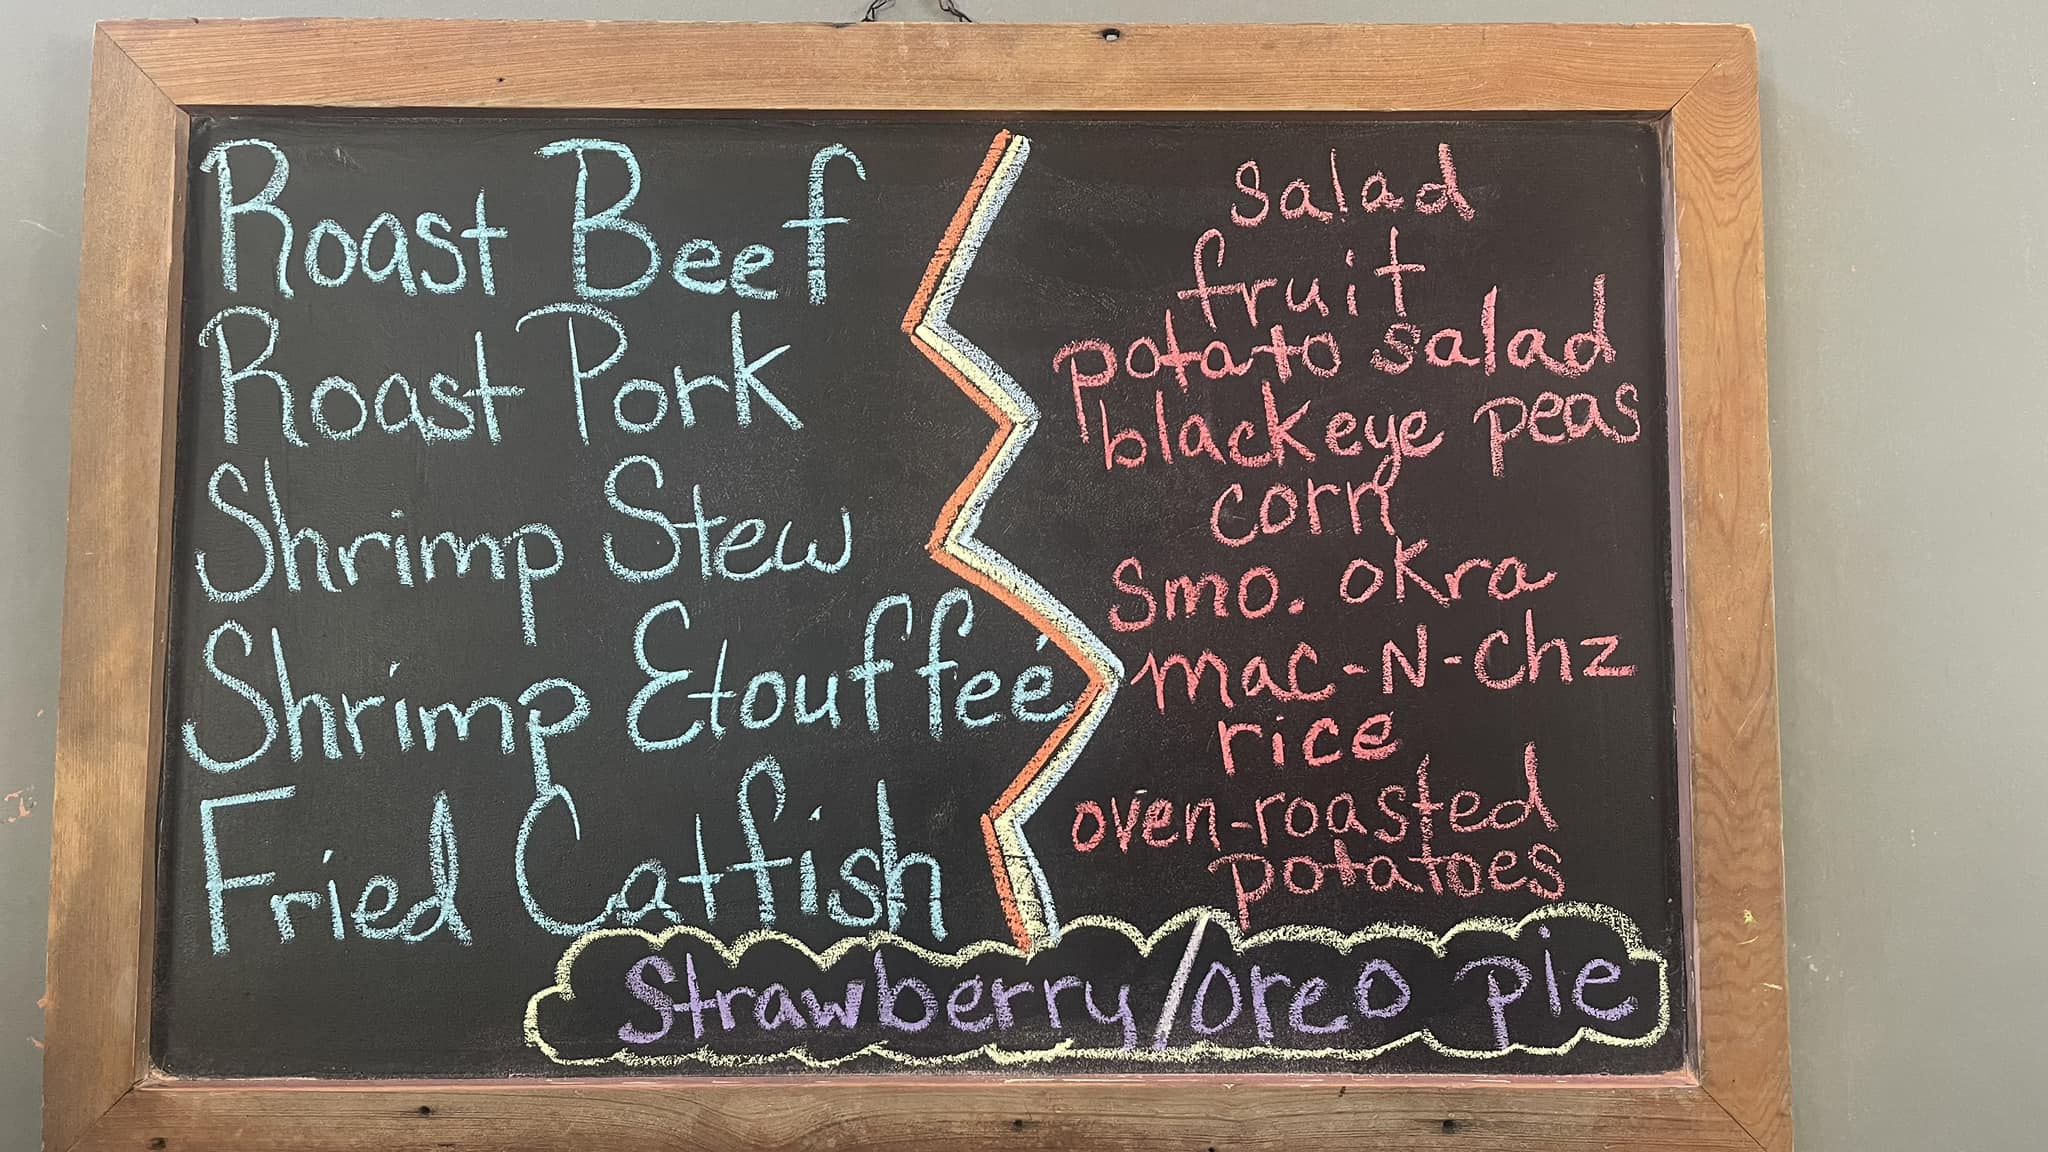 Roast Beef
Roast Pork
Shrimp Stew
Shrimp Etouffeé
Fried Catfish
salad
fruit
potato salad
blackeye peas
corn
smo. okra
mac-N-chz
rice
oven-roasted
potatoes
Strawberry/oreo pie